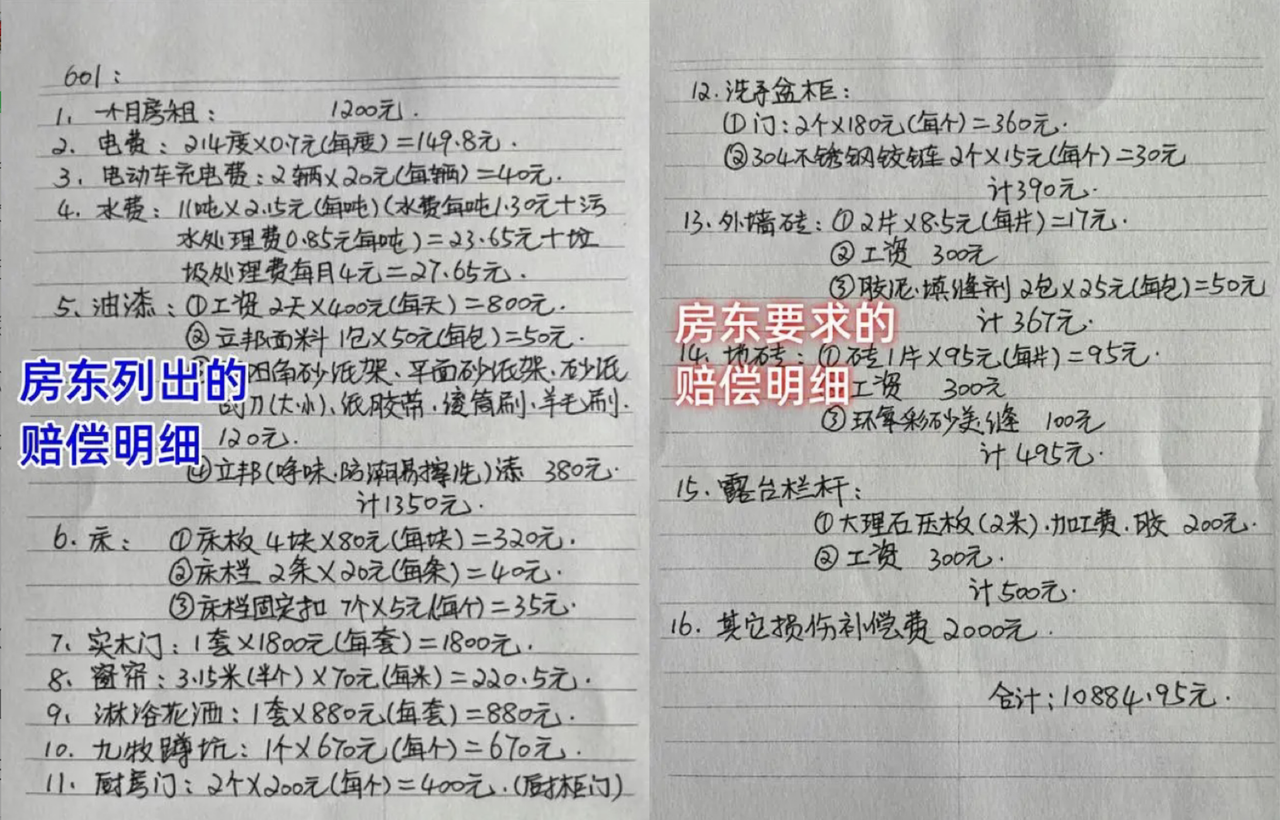 601：
1、一个月房租：1200元．
2、电费：214度×0.7元(每度)＝149.8元．
3、电动车充电费：2辆×20元(每辆)＝40元．
4、水费：11吨×2.15元(每吨)(水费每吨1.30元＋污
水处理费0.85元每吨)＝23.65元＋垃
圾处理费每月4元＝27.65元．
5、油漆：①工资 2天×400元(每天)＝800元．
②立邦面料 1包×50元(每包)＝50元．
阴角砂纸架、平面砂纸架、砂纸
刮刀(大小)、纸胶带、滚筒刷、羊毛刷．
120元．
④立邦(净味、防潮易擦洗)漆 380元．
计1350元．
6、床：①床板 4块×80元(每块)＝320元．
②床档 2条×20元(每条)＝40元．
③床档固定扣 7个×5元(每个)＝35元．
7、实木门：1套×1800元(每套)＝1800元．
8、窗帘：3.15米(半个)×70元(每米)＝220.5元．
9、淋浴花洒：1套×880元(每套)＝880元．
10、九牧蹲坑：1个×670元(每个)＝670元．
11、厨房门：2个×200元(每个)＝400元．(厨柜门)
房东列出的
赔偿明细
12、洗手盆柜：
①门：2个×180元(每个)＝360元．
②304不锈钢铰链 2个×15元(每个)＝30元
计390元．
13、外墙砖：①2片×8.5元(每片)＝17元．
②工资 300元
③胶泥、填缝剂 2包×25元(每包)＝50元
计367元．
14、地砖：①砖1片×95元(每片)＝95元．
工资 300元
③环氧彩砂美缝 100元
计495元．
15、露台栏杆：
①大理石压板(2米)、加工费、胶 200元．
②工资 300元．
计500元．
16、其它损伤补偿费2000元．
合计：10884.95元．
房东要求的
赔偿明细